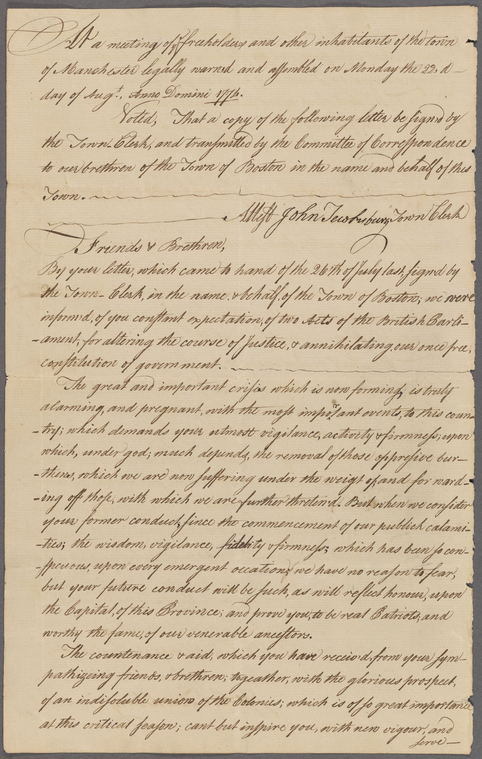 At a meeting of ye freeholders and other inhabitants of the town
of Manchester legally warned and assembled on Monday the 22. d–
day of Augt. Anno Domini 1774.
Voted, That a copy of the following letter be signed by
the Town-Clerk, and transmitted by the Committee of Correspondence
to our brethren of the Town of Boston in the name and behalf of this
Town.
Attest John Tewksbury, Town Clerk
Friends & Brethren,
By your letter, which came to hand of the 26th of July last, signed by
the Town-Clerk, in the name, & behalf, of the Town of Boston, we were
informd, of you constant expectation, of two Acts of the British Parli-
-ament, for altering the course of Justice, & annihilating our once free,
constitution of government.
The great and important crisis which is now forming, is truly
alarming, and pregnant, with the most important events, to this coun-
-try; which demands your utmost vigilance, activety & firmness; upon
which, under god; much depends, the removal of those oppresive bur-
-thens, which we are now suffering under the weigt of, and for ward-
-ing off those, with which we are further thretned. But when we consider
your former conduct, since the commencement of our publick calami-
-ties; the wisdom, vigilance, fidelity & firmness; which has been so con-
-specuous upon every emergent occation; we have no reason to fear,
but your future conduct will be such, as will reflect honour, upon
the Capital of this Province; and prove you, to be real Patriots, and
worthy the fame, of our venerable ancestors.
The countenance & aid, which you have receivd, from your sym-
pathizeing friends, & brethren, togeather, with the glorious prospect,
of an indisoluble union of the Colonies; which is of so great importance
at this critical season; cant but inspire you, with new vigour, and
serve–